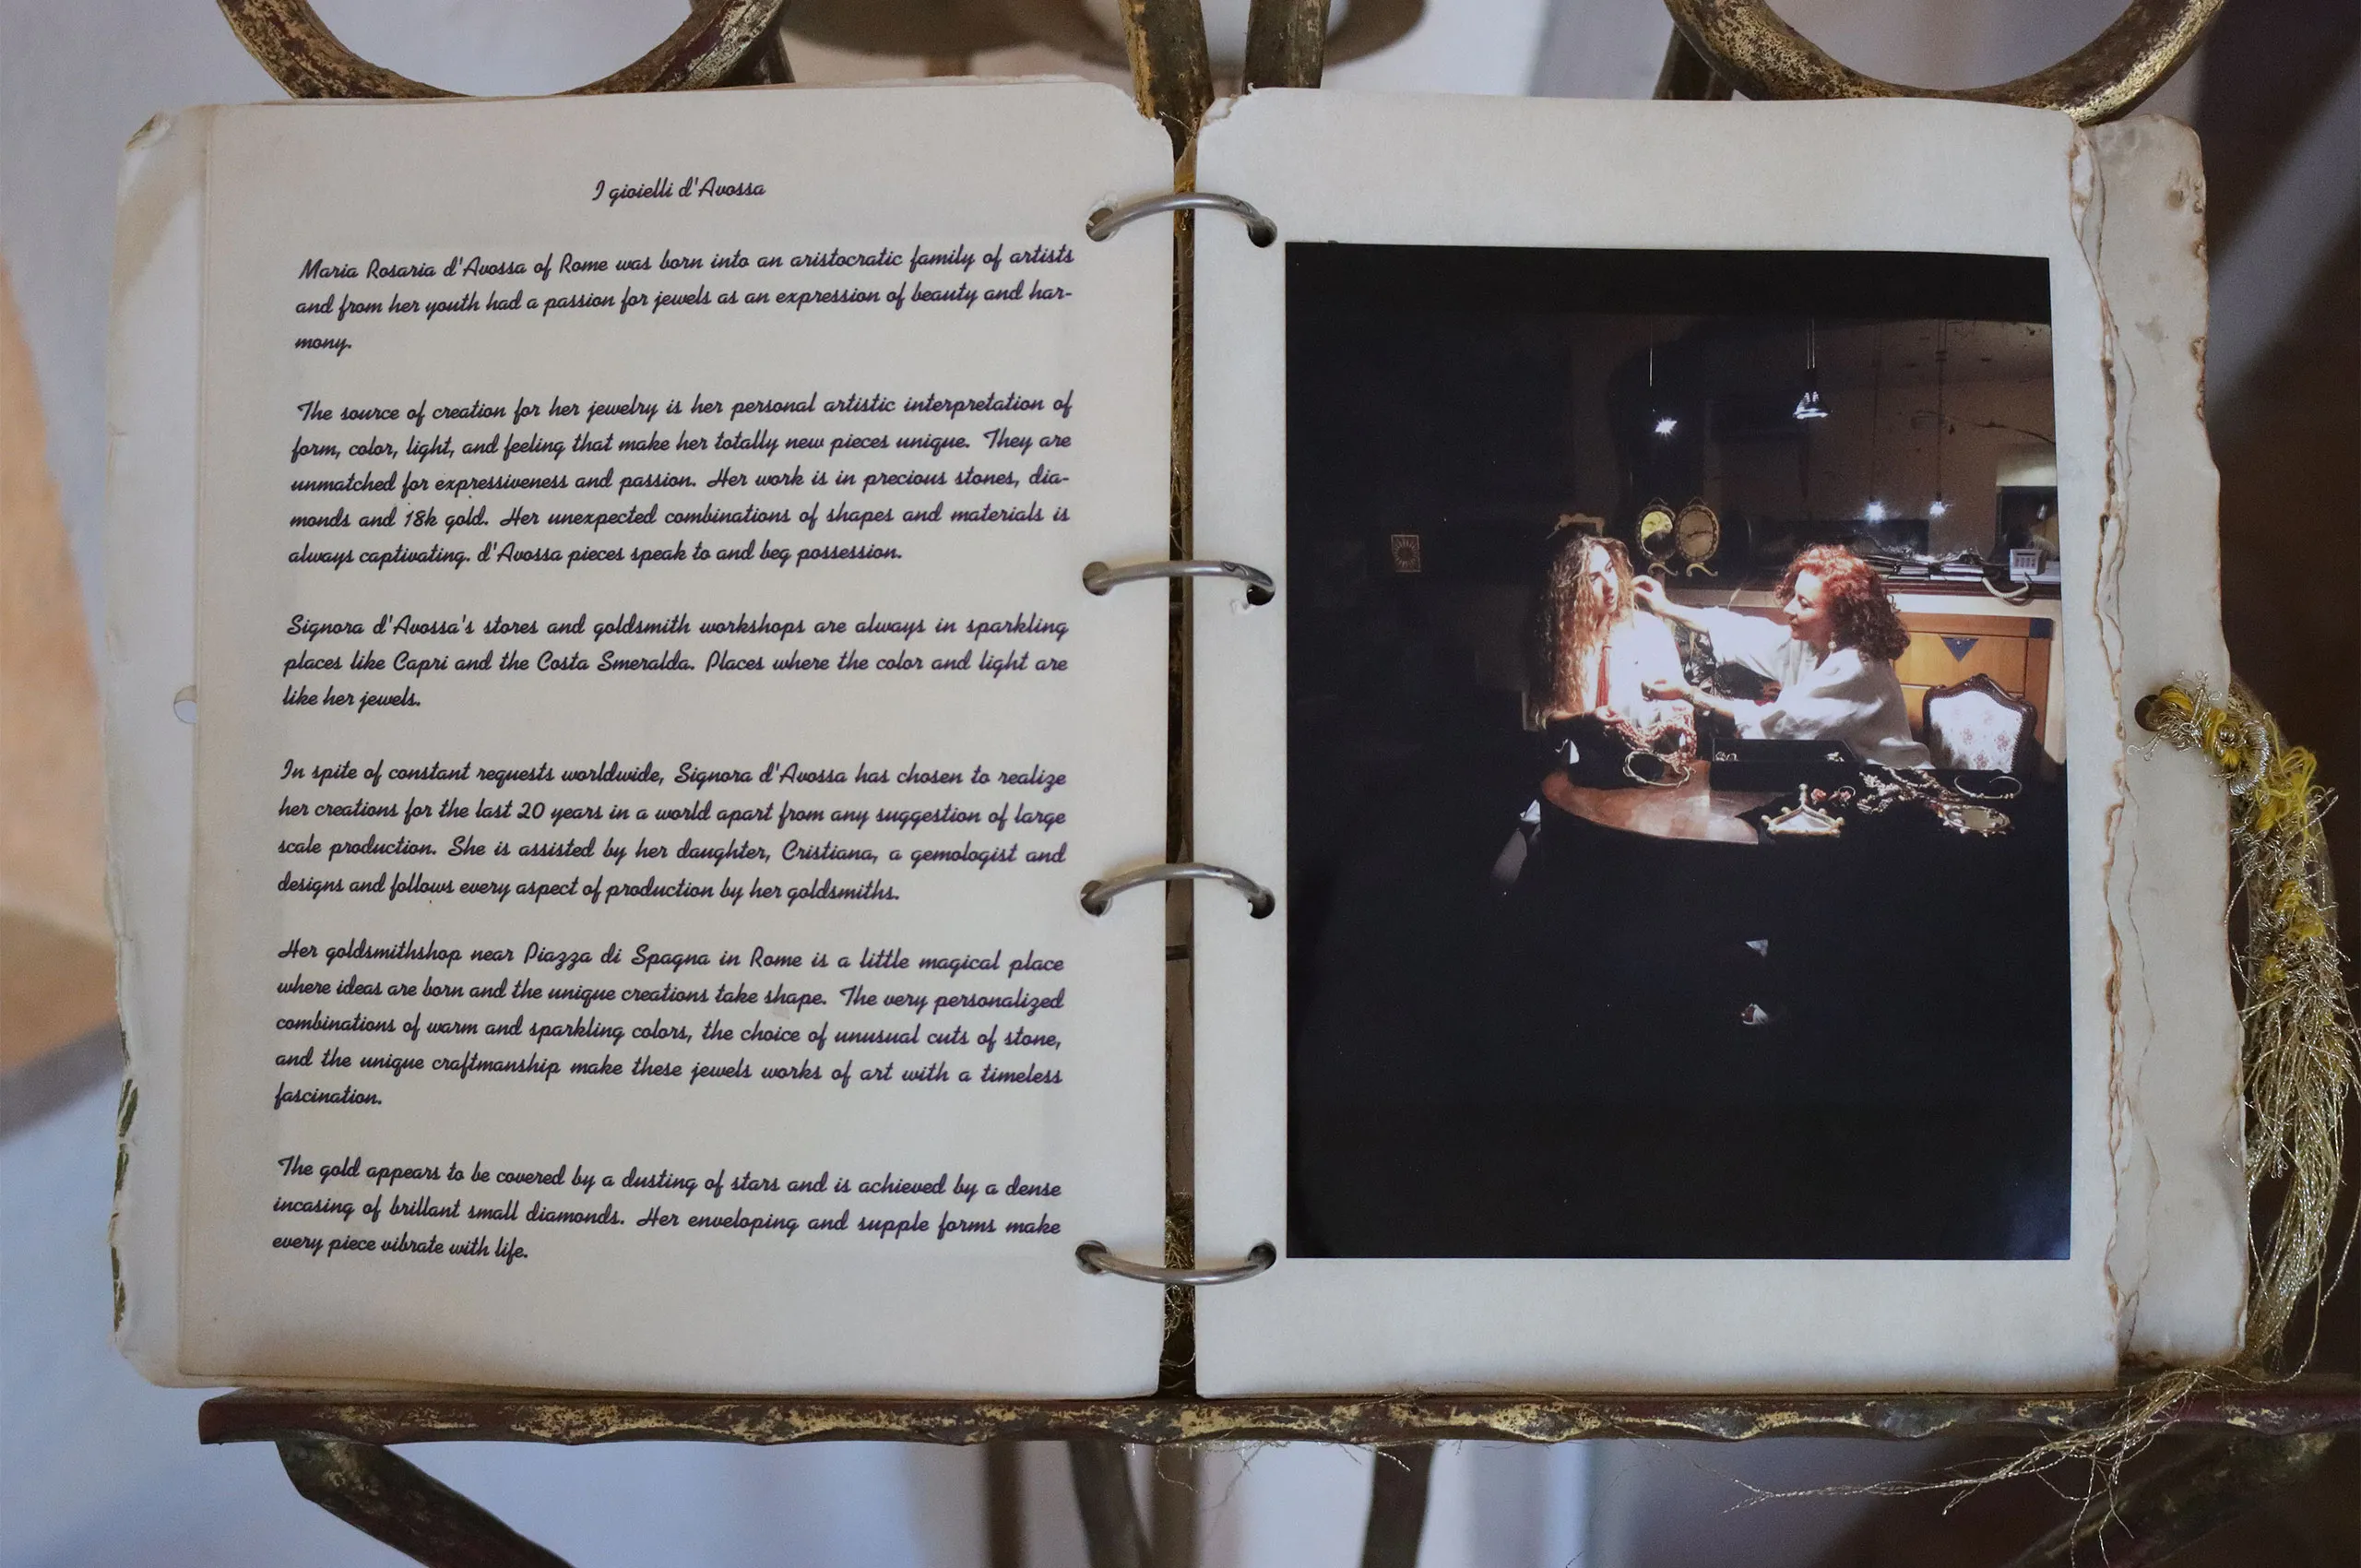 I gioielli d'Avossa
Maria Rosaria d'Avossa of Rome was born into an aristocratic family of artists
and from her youth had a passion for jewels as an expression of beauty and har-
mony.
The source of creation for her jewelry is her personal artistic interpretation of
form, color, light, and feeling that make her totally new pieces unique. They are
unmatched for expressiveness and passion. Her work is in precious stones, dia-
monds and 18k gold. Her unexpected combinations of shapes and materials is
always captivating. d'Avossa pieces speak to and beg possession.
Signora d'Avossa's stores and goldsmith workshops are always in sparkling
places like Capri and the Costa Smeralda. Places where the color and light are
like her jewels.
In spite of constant requests worldwide, Signora d'Avossa has chosen to realize
her creations for the last 20 years in a world apart from any suggestion of large
scale production. She is assisted by her daughter, Cristiana, a gemologist and
designs and follows every aspect of production by her goldsmiths.
Her goldsmithshop near Piazza di Spagna in Rome is a little magical place
where ideas are born and the unique creations take shape. The very personalized
combinations of warm and sparkling colors, the choice of unusual cuts of stone,
and the unique craftmanship make these jewels works of art with a timeless
fascination.
The gold appears to be covered by a dusting of stars and is achieved by a dense
incasing of brillant small diamonds. Her enveloping and supple forms make
every piece vibrate with life.